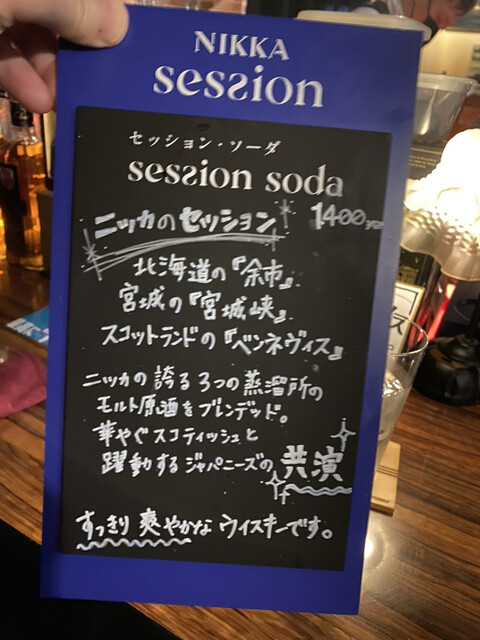 NIKKA
session
セッション・ソーダ
session soda
ニッカのセッション!
1400
北海道の『余市』.
宮城の『宮城峡』.
スコットランドの『ベンネヴィス』
ニッカの誇る3つの蒸溜所の
モルト原酒をブレンデッド。
華やぐスコティッシュと
躍動するジャパニーズの共演
すっきり爽やかなウイスキーです。